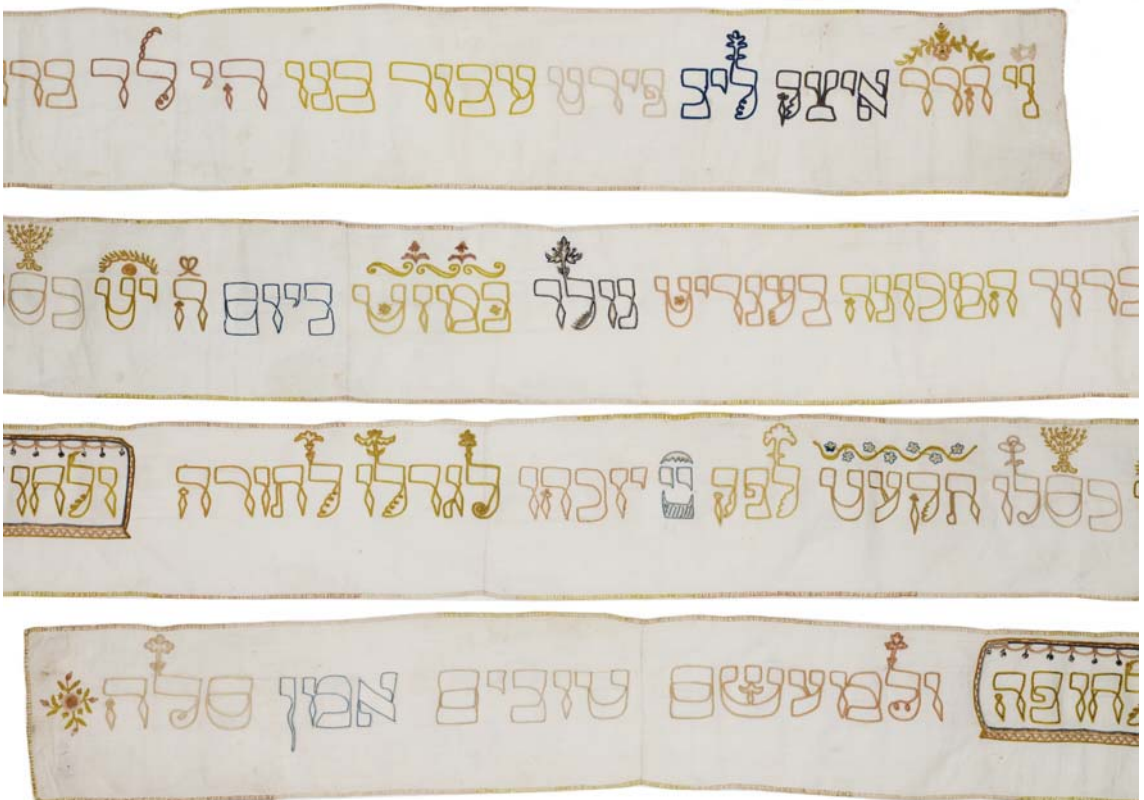 הרר איצק ליב פירט עבור בנו הי לד ברו
רוך המכונה בענדיט נולד במזט ביום ה יט כס
כסלו תקעט לפק יי יזכהו לגדלו לתורה ולחו
לחופה ולמעשם טובים אמן סלה